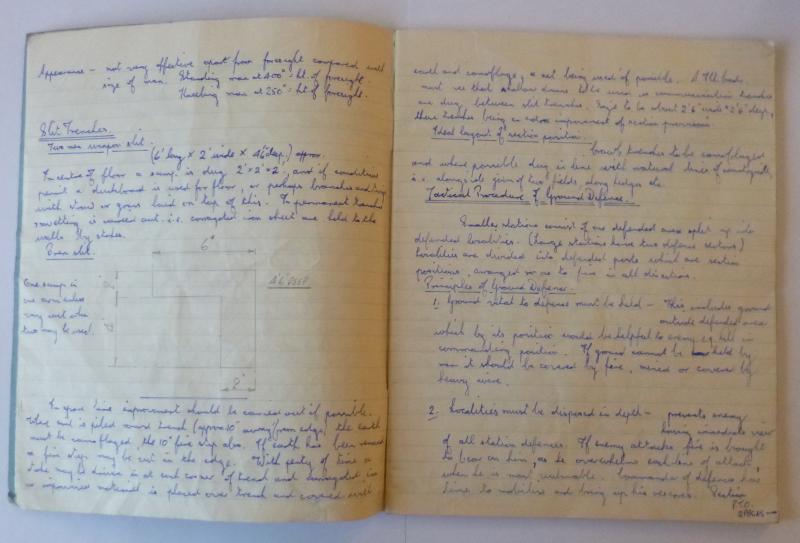 Appearance – not very effective apart from foresight compared with
size of man. Standing man at 400ˣ = ht. of foresight.
Kneeling man at 250ˣ = ht of foresight.
Slit Trenches.
Two man weapon slit.
(6' long × 2' wide × 4'6 deep) approx.
In centre of floor a sump is dug 2' × 2' × 2', and if conditions
permit a duckboard is used for floor, or perhaps branches and twigs
with straw or grass laid on top of this. In permanent trenches
revetting is carried out i.e. corrugated iron sheets are held to the
walls by stakes.
Bren slit.
6'
4'6 DEEP
One sump in
one arm unless
very wet when
two may be used.
2'
In spare time improvement should be carried out if possible.
When soil is piled round trench (approx 10" away from edge) the earth
must be camouflaged, the 10" fire step also. If earth has been removed
a fire step may be cut in the edge. With plenty of time a
stake may be driven in at each corner of trench and corrugated iron
or improvised material is placed over trench and covered with
earth and camouflage, a net being used if possible.
must see that shallow drains to be used as communication trenches
are dug between slit trenches. to be about 2'6" wide × 2'6" deep,
these trenches being an extra improvement of section provision.
Ideal layout of section position.
trenches to be camouflaged
and where possible dug in line with natural lines of countryside,
i.e. alongside join of two fields, along hedges etc.
Tactical Procedure of Ground Defence.
Smaller stations consist of one defended area split up into
defended localities. (Large stations have two defence sectors)
Localities are divided into defended posts which are section
positions, arranged so as to fire in all directions.
Principles of Ground Defence.
1. Ground vital to defence must be held – This includes ground
outside defended area
which by its position would be helpful to enemy e.g. hill in
commanding position. If ground cannot be held by
men it should be covered by fire, mined or covered by
heavy wire.
2. Localities must be disposed in depth – prevents enemy
having immediate view
of all station defences. If enemy attacks fire is brought
to bear on him, as he overwhelms each line of attack,
when he is most vulnerable. Commander of defence has
time to mobilise and bring up his reserves. Section
P.T.O.
2 PAGES